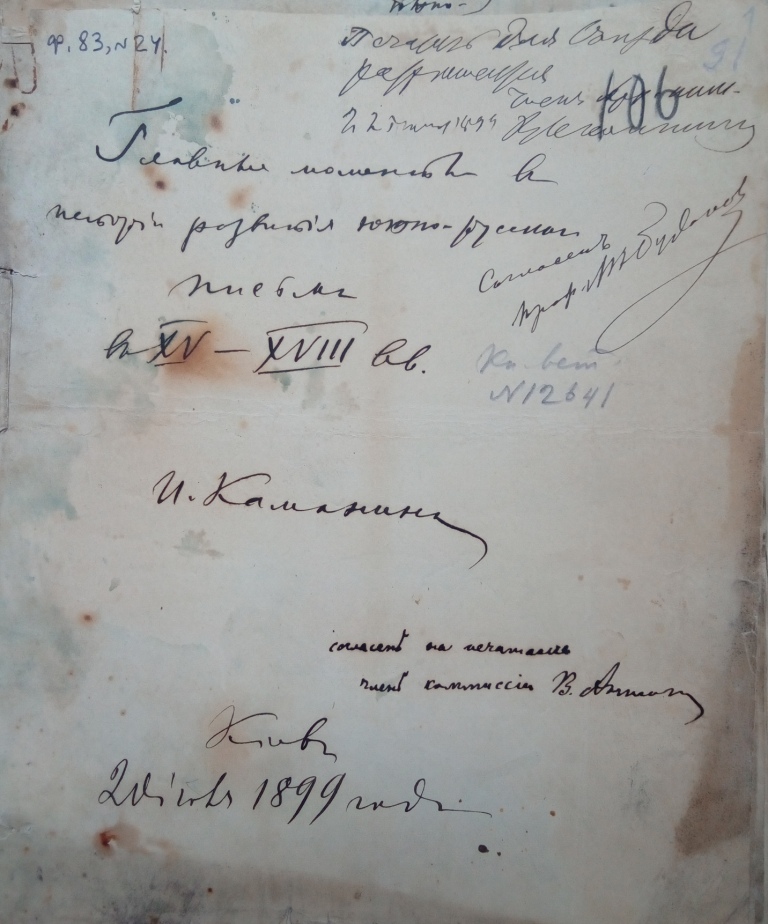 южно-
Ф. 83, № 24.
Печать для Съезда
разрешается
Член
22 1899
106
91
Главные моменты в
истории развития южно-русскаго
письма
въ XV — XVIII вв.
Согласенъ
проф.
№ 12641
И. Каманинъ
согласенъ на печатание
членъ коммиссіи В. Антонович
Кіевъ
1899 года